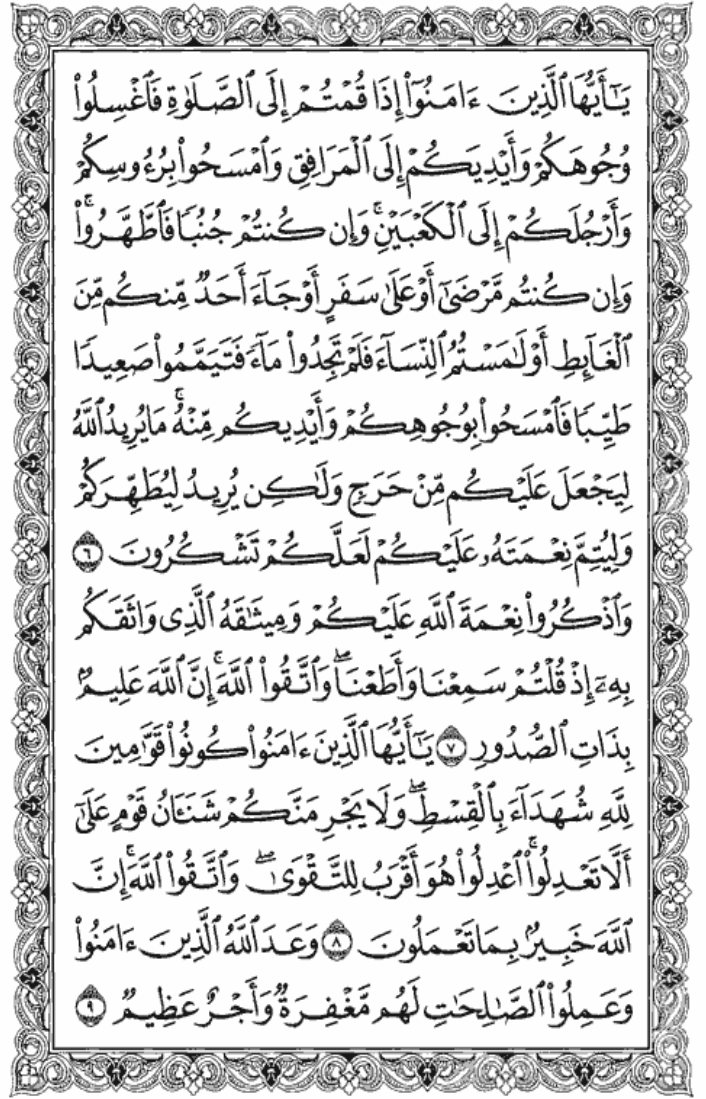 يَـٰٓأَيُّهَا ٱلَّذِينَ ءَامَنُوٓا۟ إِذَا قُمْتُمْ إِلَى ٱلصَّلَوٰةِ فَٱغْسِلُوا۟
وُجُوهَكُمْ وَأَيْدِيَكُمْ إِلَى ٱلْمَرَافِقِ وَٱمْسَحُوا۟ بِرُءُوسِكُمْ
وَأَرْجُلَكُمْ إِلَى ٱلْكَعْبَيْنِ ۚ وَإِن كُنتُمْ جُنُبًا فَٱطَّهَّرُوا۟ ۚ
وَإِن كُنتُم مَّرْضَىٰٓ أَوْ عَلَىٰ سَفَرٍ أَوْ جَآءَ أَحَدٌ مِّنكُم مِّنَ
ٱلْغَآئِطِ أَوْ لَـٰمَسْتُمُ ٱلنِّسَآءَ فَلَمْ تَجِدُوا۟ مَآءً فَتَيَمَّمُوا۟ صَعِيدًا
طَيِّبًا فَٱمْسَحُوا۟ بِوُجُوهِكُمْ وَأَيْدِيكُم مِّنْهُ ۚ مَا يُرِيدُ ٱللَّهُ
لِيَجْعَلَ عَلَيْكُم مِّنْ حَرَجٍ وَلَـٰكِن يُرِيدُ لِيُطَهِّرَكُمْ
وَلِيُتِمَّ نِعْمَتَهُۥ عَلَيْكُمْ لَعَلَّكُمْ تَشْكُرُونَ ٦
وَٱذْكُرُوا۟ نِعْمَةَ ٱللَّهِ عَلَيْكُمْ وَمِيثَـٰقَهُ ٱلَّذِى وَاثَقَكُم
بِهِۦٓ إِذْ قُلْتُمْ سَمِعْنَا وَأَطَعْنَا ۖ وَٱتَّقُوا۟ ٱللَّهَ ۚ إِنَّ ٱللَّهَ عَلِيمٌۢ
بِذَاتِ ٱلصُّدُورِ ٧ يَـٰٓأَيُّهَا ٱلَّذِينَ ءَامَنُوا۟ كُونُوا۟ قَوَّٰمِينَ
لِلَّهِ شُهَدَآءَ بِٱلْقِسْطِ ۖ وَلَا يَجْرِمَنَّكُمْ شَنَـَٔانُ قَوْمٍ عَلَىٰٓ
أَلَّا تَعْدِلُوا۟ ۚ ٱعْدِلُوا۟ هُوَ أَقْرَبُ لِلتَّقْوَىٰ ۖ وَٱتَّقُوا۟ ٱللَّهَ ۚ إِنَّ
ٱللَّهَ خَبِيرٌۢ بِمَا تَعْمَلُونَ ٨ وَعَدَ ٱللَّهُ ٱلَّذِينَ ءَامَنُوا۟
وَعَمِلُوا۟ ٱلصَّـٰلِحَـٰتِ لَهُم مَّغْفِرَةٌ وَأَجْرٌ عَظِيمٌ ٩